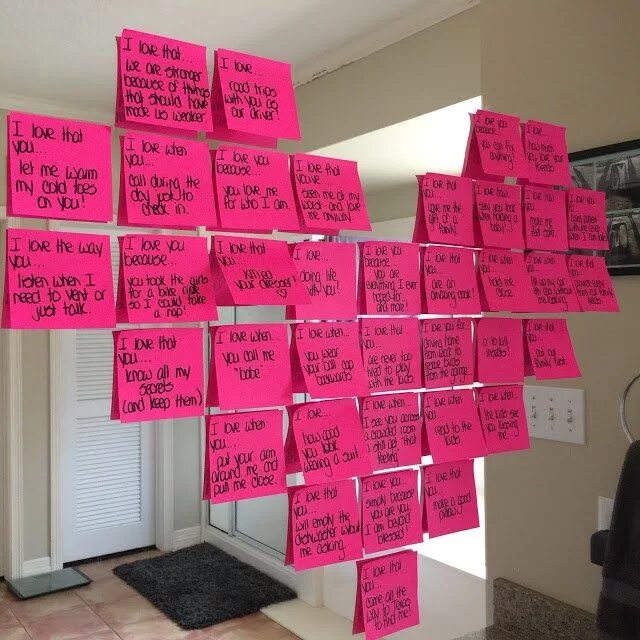 I love that...
we are stronger
because of things
that should have
made us weaker.
I love...
road trips
with you as
our driver!
I love you
because...
you can fix
anything!
I love...
how much
you love your
friends
I love that
you...
let me warm
my cold toes
on you!
I love when
you...
call during the
day just to
check in.
I love you
because...
you love me
for who I am.
I love that
you've
seen me at my
worst and love
me anyway
I love that
you...
gave me the
gift of a
family.
I love how...
sexy you look
when holding a
baby!
you...
make me
feel safe.
I love the way
you...
listen when I
need to vent or
just talk.
I love you
because...
you took the girls
for a bike ride
so I could take
a nap!
I love that
you...
are my
I love...
doing life
with you!
I love you
because
you are
everything I ever
hoped for
and more!
I love that
you...
are an
amazing cook!
I love when
you...
hold me
close.
I love when
you...
fill up my car
me asking.
I love that
you...
I love that
you...
know all my
secrets
(and keep them)
I love when...
you call me
"babe"
I love when...
you wear
your ball cap
backwards
I love that
you...
are never too
tired to play
with the kids.
I love you for
driving home
from work to
rescue birds
from the garage
to kill
insects!
I love that
you...
put our
family first.
I love when
you...
put your arm
around me and
pull me close.
I love...
how good
you look
wearing a suit.
I love when...
I see you across
a crowded room
I still get that
feeling.
I love when
you...
read to the
kids.
I love when
the kids see
you kissing
me.
I love that
you...
will empty the
dishwasher w/out
me asking.
I love you...
simply because
you are you.
I am beyond
blessed!
I love that
you...
make a good
pillow!
I love that
you...
came all the
way to Texas
to find me!